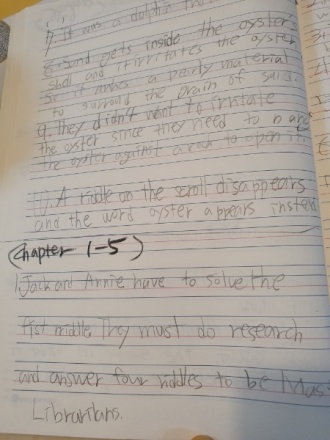 7. It was a dolphin
8. Sand gets inside the oyster's
shell and it irritates the oyster
So it makes a pearly material
to surround the grain of sand.
9. they didn't want to irritate
the oyster since they need to
the oyster against a rock to open it
10. A riddle on the scroll disappears
and the word oyster appears insted
(Chapter 1-5)
1. Jack and Annie have to solve the
fist riddle. They must do research
and answer four riddles to be Mas
Librarians.